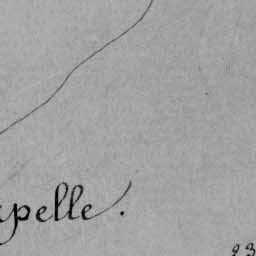 pelle.
23